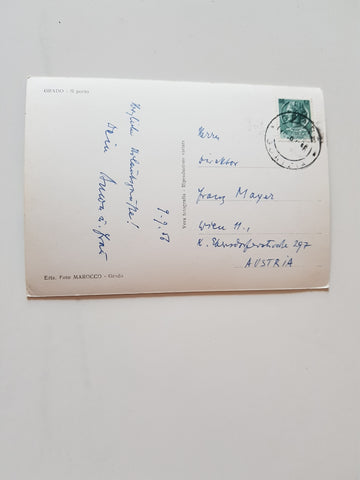 GRADO - Il porto
9.9.58
Herzliche Urlaubsgrüße!
Dein
Edit. Foto MAROCCO - Grado
Vera fotografia - Riproduzione vietata
Herrn
Direktor
Franz Mayer
Wien 11.,
297
AUSTRIA